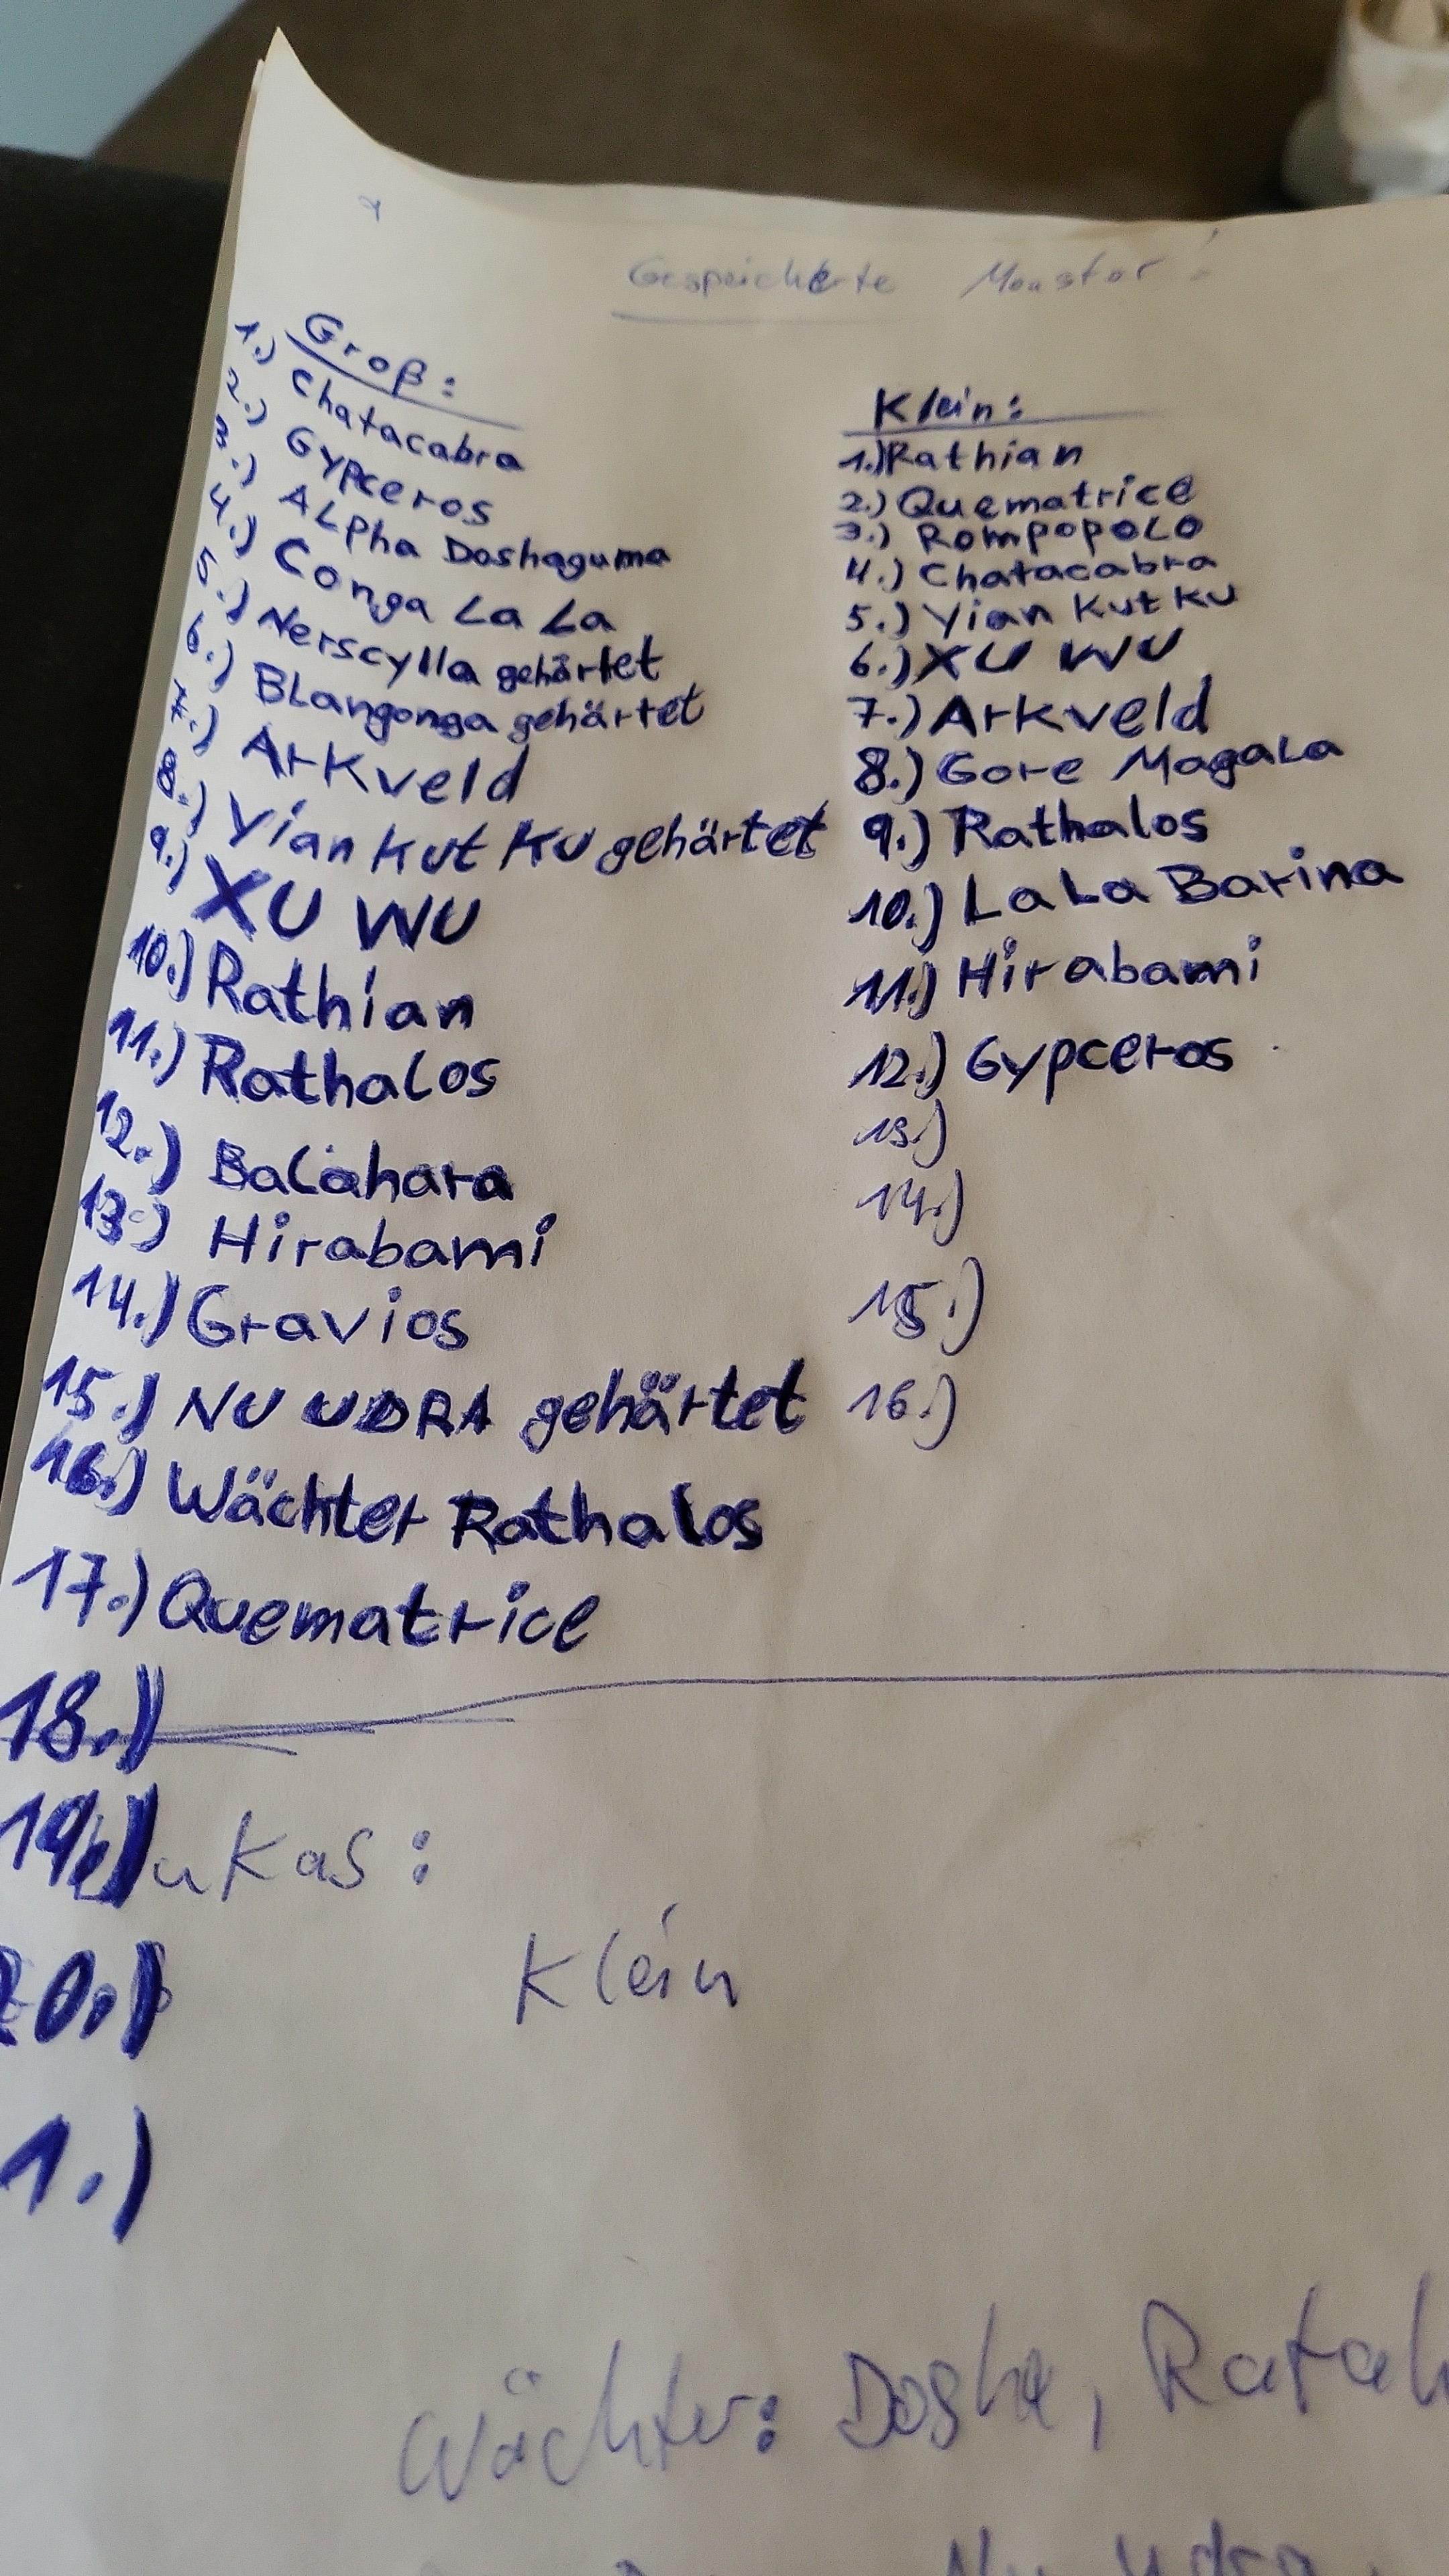 Gespeicherte Monster!
Groß:
1.) Chatacabra
2.) Gypceros
3.) ALpha Doshaguma
4.) Conga La La
5.) Nerscylla gehärtet
6.) BLangonga gehärtet
7.) ArKveld
8.) Yian Kut Ku gehärtet
9.) XU WU
10.) Rathian
11.) Rathalos
12.) Balahara
13.) Hirabami
14.) Gravios
15.) NU UDRA gehärtet
16.) Wächter Rathalos
17.) Quematrice
18.)
19.)
20.)
1.)
Klein:
1.) Rathian
2.) Quematrice
3.) RompopoLO
4.) Chatacabra
5.) Yian Kut Ku
6.) XU WU
7.) Arkveld
8.) Gore MagaLa
9.) Rathalos
10.) LaLa Barina
11.) Hirabami
12.) Gypceros
13.)
14.)
15.)
16.)
Lukas:
Klein
Wächter: Dosha, Ratah
Nu Udra